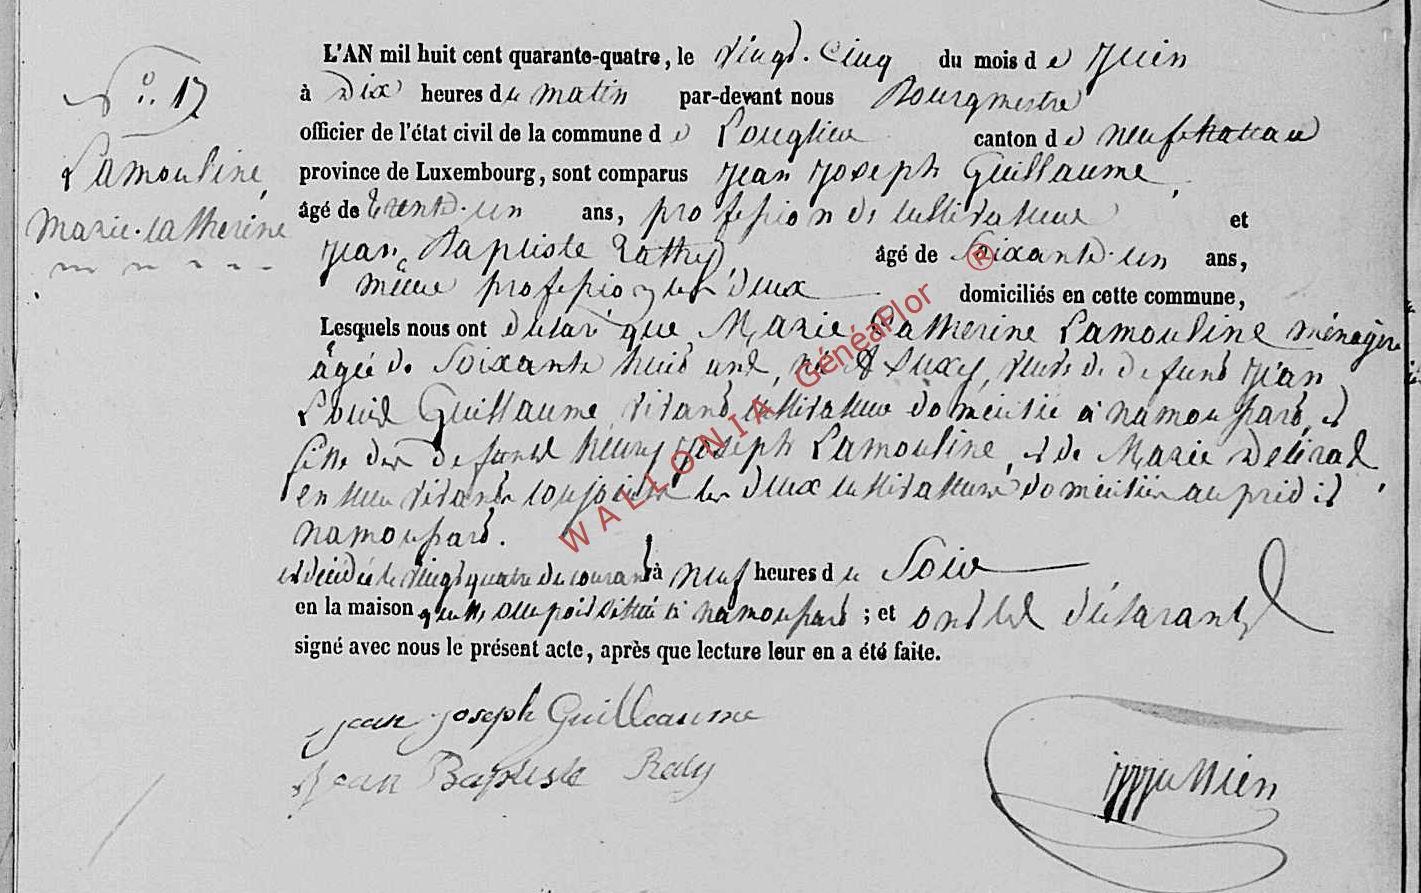 N° 17
Lamouline,
Marie-Catherine
L'AN mil huit cent quarante-quatre, le vingt-cinq du mois de Juin
à dix heures du matin par-devant nous Bourgmestre
officier de l'état civil de la commune de Longlier canton de neufchateau
province de Luxembourg, sont comparus Jean Joseph Guillaume,
âgé de trente-un ans, profession de cultivateur et
Jean Baptiste âgé de soixante-un ans,
même profession les deux domiciliés en cette commune,
Lesquels nous ont déclaré que Marie Catherine Lamouline ménagère
âgée de soixante huit ans, née à Suxy, veuve de defunt Jean
Louis Guillaume, vivant cultivateur domicilié à namoussart, et
fille des defunts henry Joseph Lamouline, et de Marie
en leur vivant conjoints les deux cultivateurs domiciliés au prédit
namoussart.
est décédée le vingt quatre du courant à neuf heures du Soir
en la maison qu'elle occupoit située à namoussart ; et ont les déclarants
signé avec nous le présent acte, après que lecture leur en a été faite.
Jean Joseph Guilleaume
Jean Baptiste
WALLONIA GénéaFlor ®